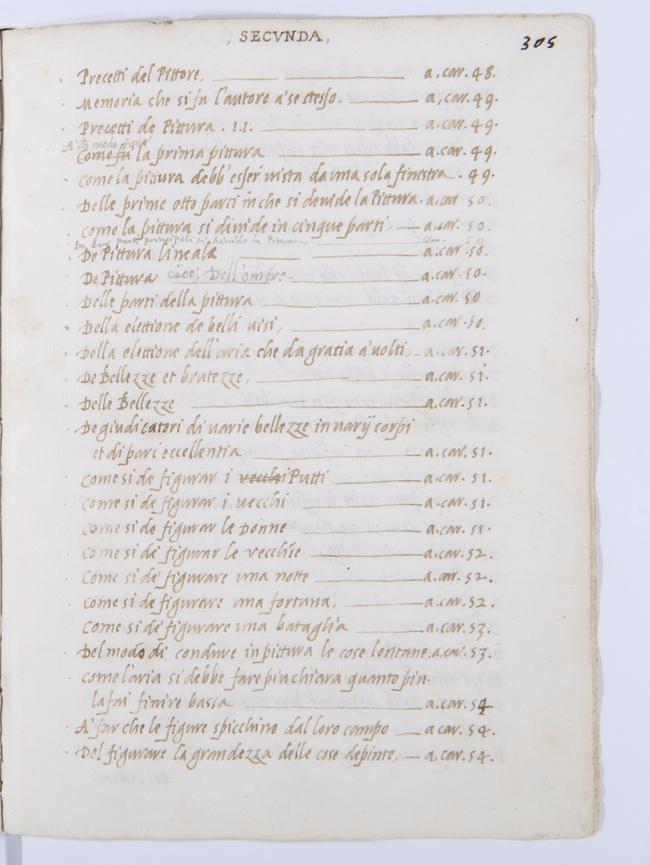 , SECVNDA,
305
Precetti del Pittore, a. car. 48.
Memoria che si fa l'autore a' se stesso. a. car. 49.
Precetti de Pittura . 1.1. a. car. 49.
Come fu la prima pittura a. car. 49.
come la pittura debb' esser vista da una sola finestra . 49.
Delle prime otto parti in che si devide la Pittura. a. car 50.
come la pittura si divide in cinque parti a. car. 50.
In due parti principali si divide la Pittura 50
De Pittura lineale a. car. 50.
De Pittura cioè, Dell'ombre a. car. 50.
Delle parti della pittura a. car. 50
Della elettione de belli visi, a. car. 50.
Della elettione dell'aria che da gratia a' volti, a. car. 51.
De Bellezze et brutezze, a. car. 51.
Delle Bellezze a. car. 51.
De giudicatori di varie bellezze in varij corpi
et di pari eccellentia a. car. 51.
Come si de figurar i vecchi Putti a. car. 51.
Come si de figurar i vecchi a. car. 51.
Come si de figurar le Donne a. car. 51.
Come si de figurar le vecchie a. car. 52.
Come si de figurare una notte a. car. 52.
Come si de figurare una fortuna, a. car. 52.
Come si de figurare una bataglia a. car. 53.
Del modo di condure in pittura le cose lontane. a. car. 53.
come l'aria si debbe fare piu chiara quanto piu
la fai finire bassa a. car. 54
A' far che le figure spicchino dal loro campo a. car. 54.
Del figurare la grandezza delle cose depinte, a. car. 54.